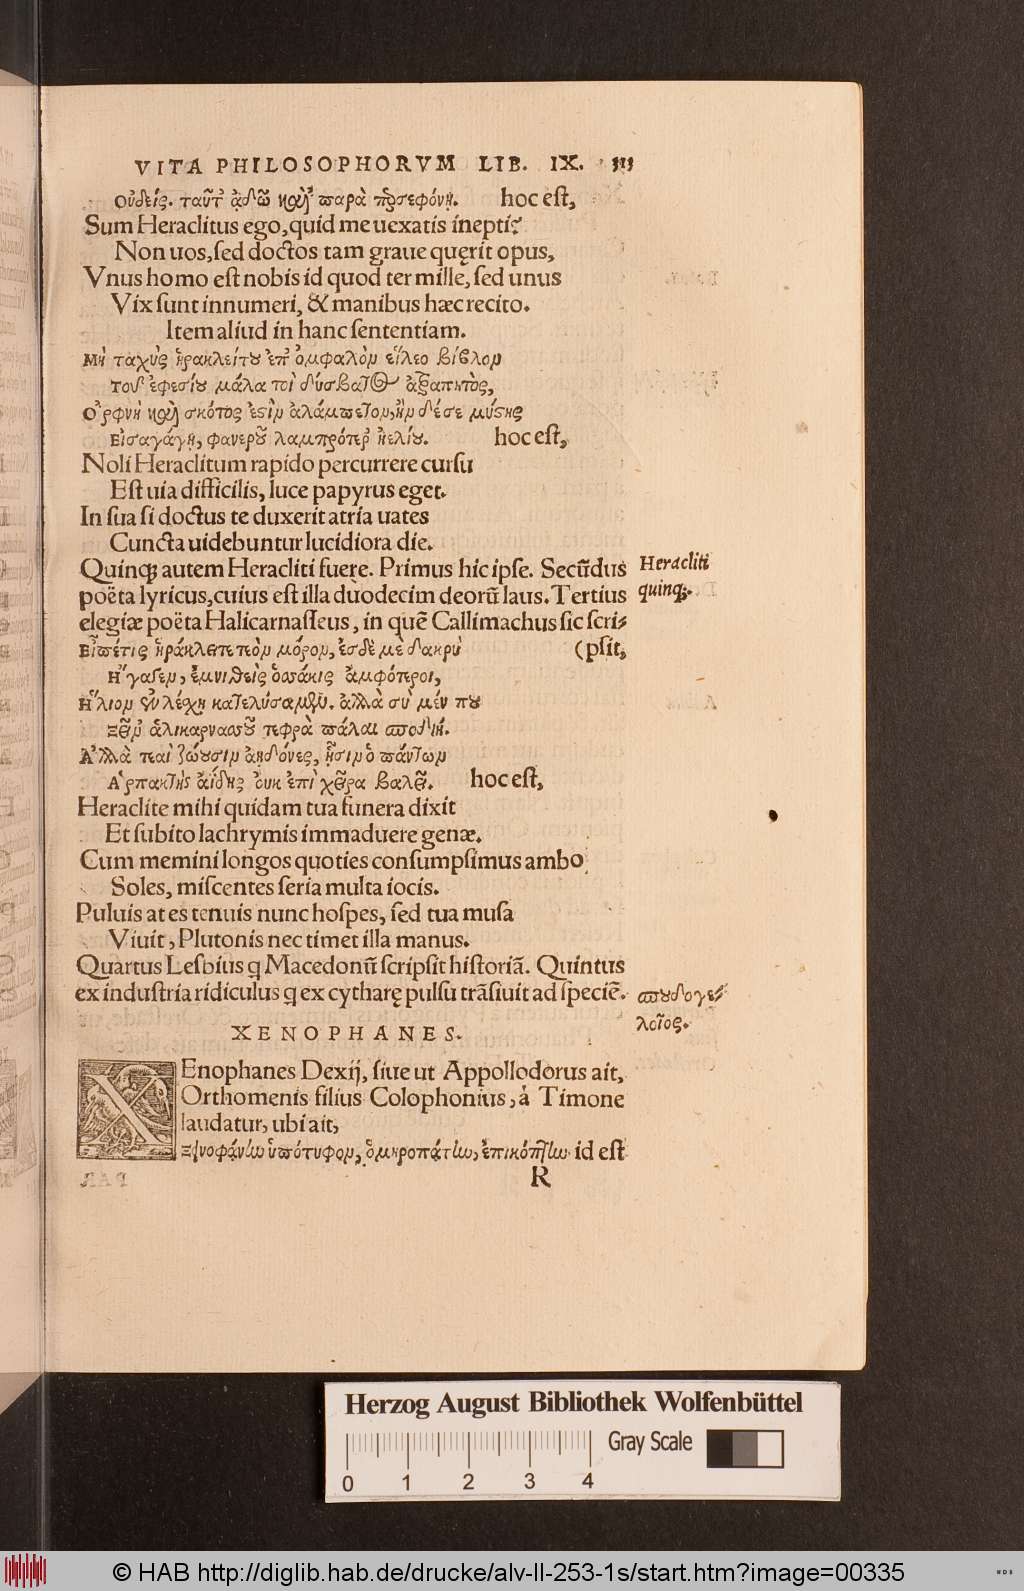 VITA PHILOSOPHORVM LIB. IX.
οὐδείς. ταῦτ ἀυδῶ καὶ παρὰ προσεφόνῃ. hoc est,
Sum Heraclitus ego, quid me uexatis inepti?
Non uos, sed doctos tam graue quęrit opus,
Vnus homo est nobis id quod ter mille, sed unus
Vix sunt innumeri, & manibus hæc recito.
Item aliud in hanc sententiam.
Μὴ ταχὺς ἡρακλείτου ἐπ ὀμφαλὸν εἵλεο βίβλον
τοῦ ἐφεσίου μάλα τοὶ δύσβατος ἀτραπητὸς,
Ορφνὴ καὶ σκότος ἐστὶν ἀλάμπετον, ἢν δέ σε μύστης
Εἰσαγάγῃ, φανεροῦ λαμπρότερ ἠελίου. hoc est,
Noli Heraclitum rapido percurrere cursu
Est uia difficilis, luce papyrus eget.
In sua si doctus te duxerit atria uates
Cuncta uidebuntur lucidiora die.
Quinqꝫ autem Heracliti fuere. Primus hic ipse. Secũdus
Heracliti
poëta lyricus, cuius est illa duodecim deorũ laus. Tertius
quinqꝫ.
elegiæ poëta Halicarnasseus, in quẽ Callimachus sic scri-
Εἶπέ τις ἡράκλειτε τεὸν μόρον, ἐς δὲ μὲ δακρὺ (psit,
Ηγαγεν, ἐμνήσθεις ὁσσάκις ἀμφότεροι,
Ηλιον ἐν λέχῃ κατελύσαμεν. ἀλλὰ σὺ μέν που
ξεῖν ἁλικαρνασσοῦ τεφρὰ πάλαι σποδιή.
Αλλὰ τεαὶ ζώουσιν ἀηδόνες, ᾗσιν ὁ πάντων
Αρπακτὴς ἀΐδης οὐκ ἐπὶ χεῖρα βαλεῖ. hoc est,
Heraclite mihi quidam tua funera dixit
Et subito lachrymis immaduere genæ.
Cum memini longos quoties consumpsimus ambo
Soles, miscentes seria multa iocis.
Puluis at es tenuis nunc hospes, sed tua musa
Viuit, Plutonis nec timet illa manus.
Quartus Lesbius q Macedonũ scripsit historiã. Quintus
ex industria ridiculus q ex cytharę pulsu trãsiuit ad speciẽ.
σπουδογέ-
λοῖος.
XENOPHANES.
XEnophanes Dexij, siue ut Appollodorus ait,
Orthomenis filius Colophonius, à Timone
laudatur, ubi ait,
Ξεινοφάνην ὑπότυφον, ὁμηροπάτην, ἐπικόπτην id est
R
Herzog August Bibliothek Wolfenbüttel
Gray Scale
0 1 2 3 4
© HAB http://diglib.hab.de/drucke/alv-ll-253-1s/start.htm?image=00335